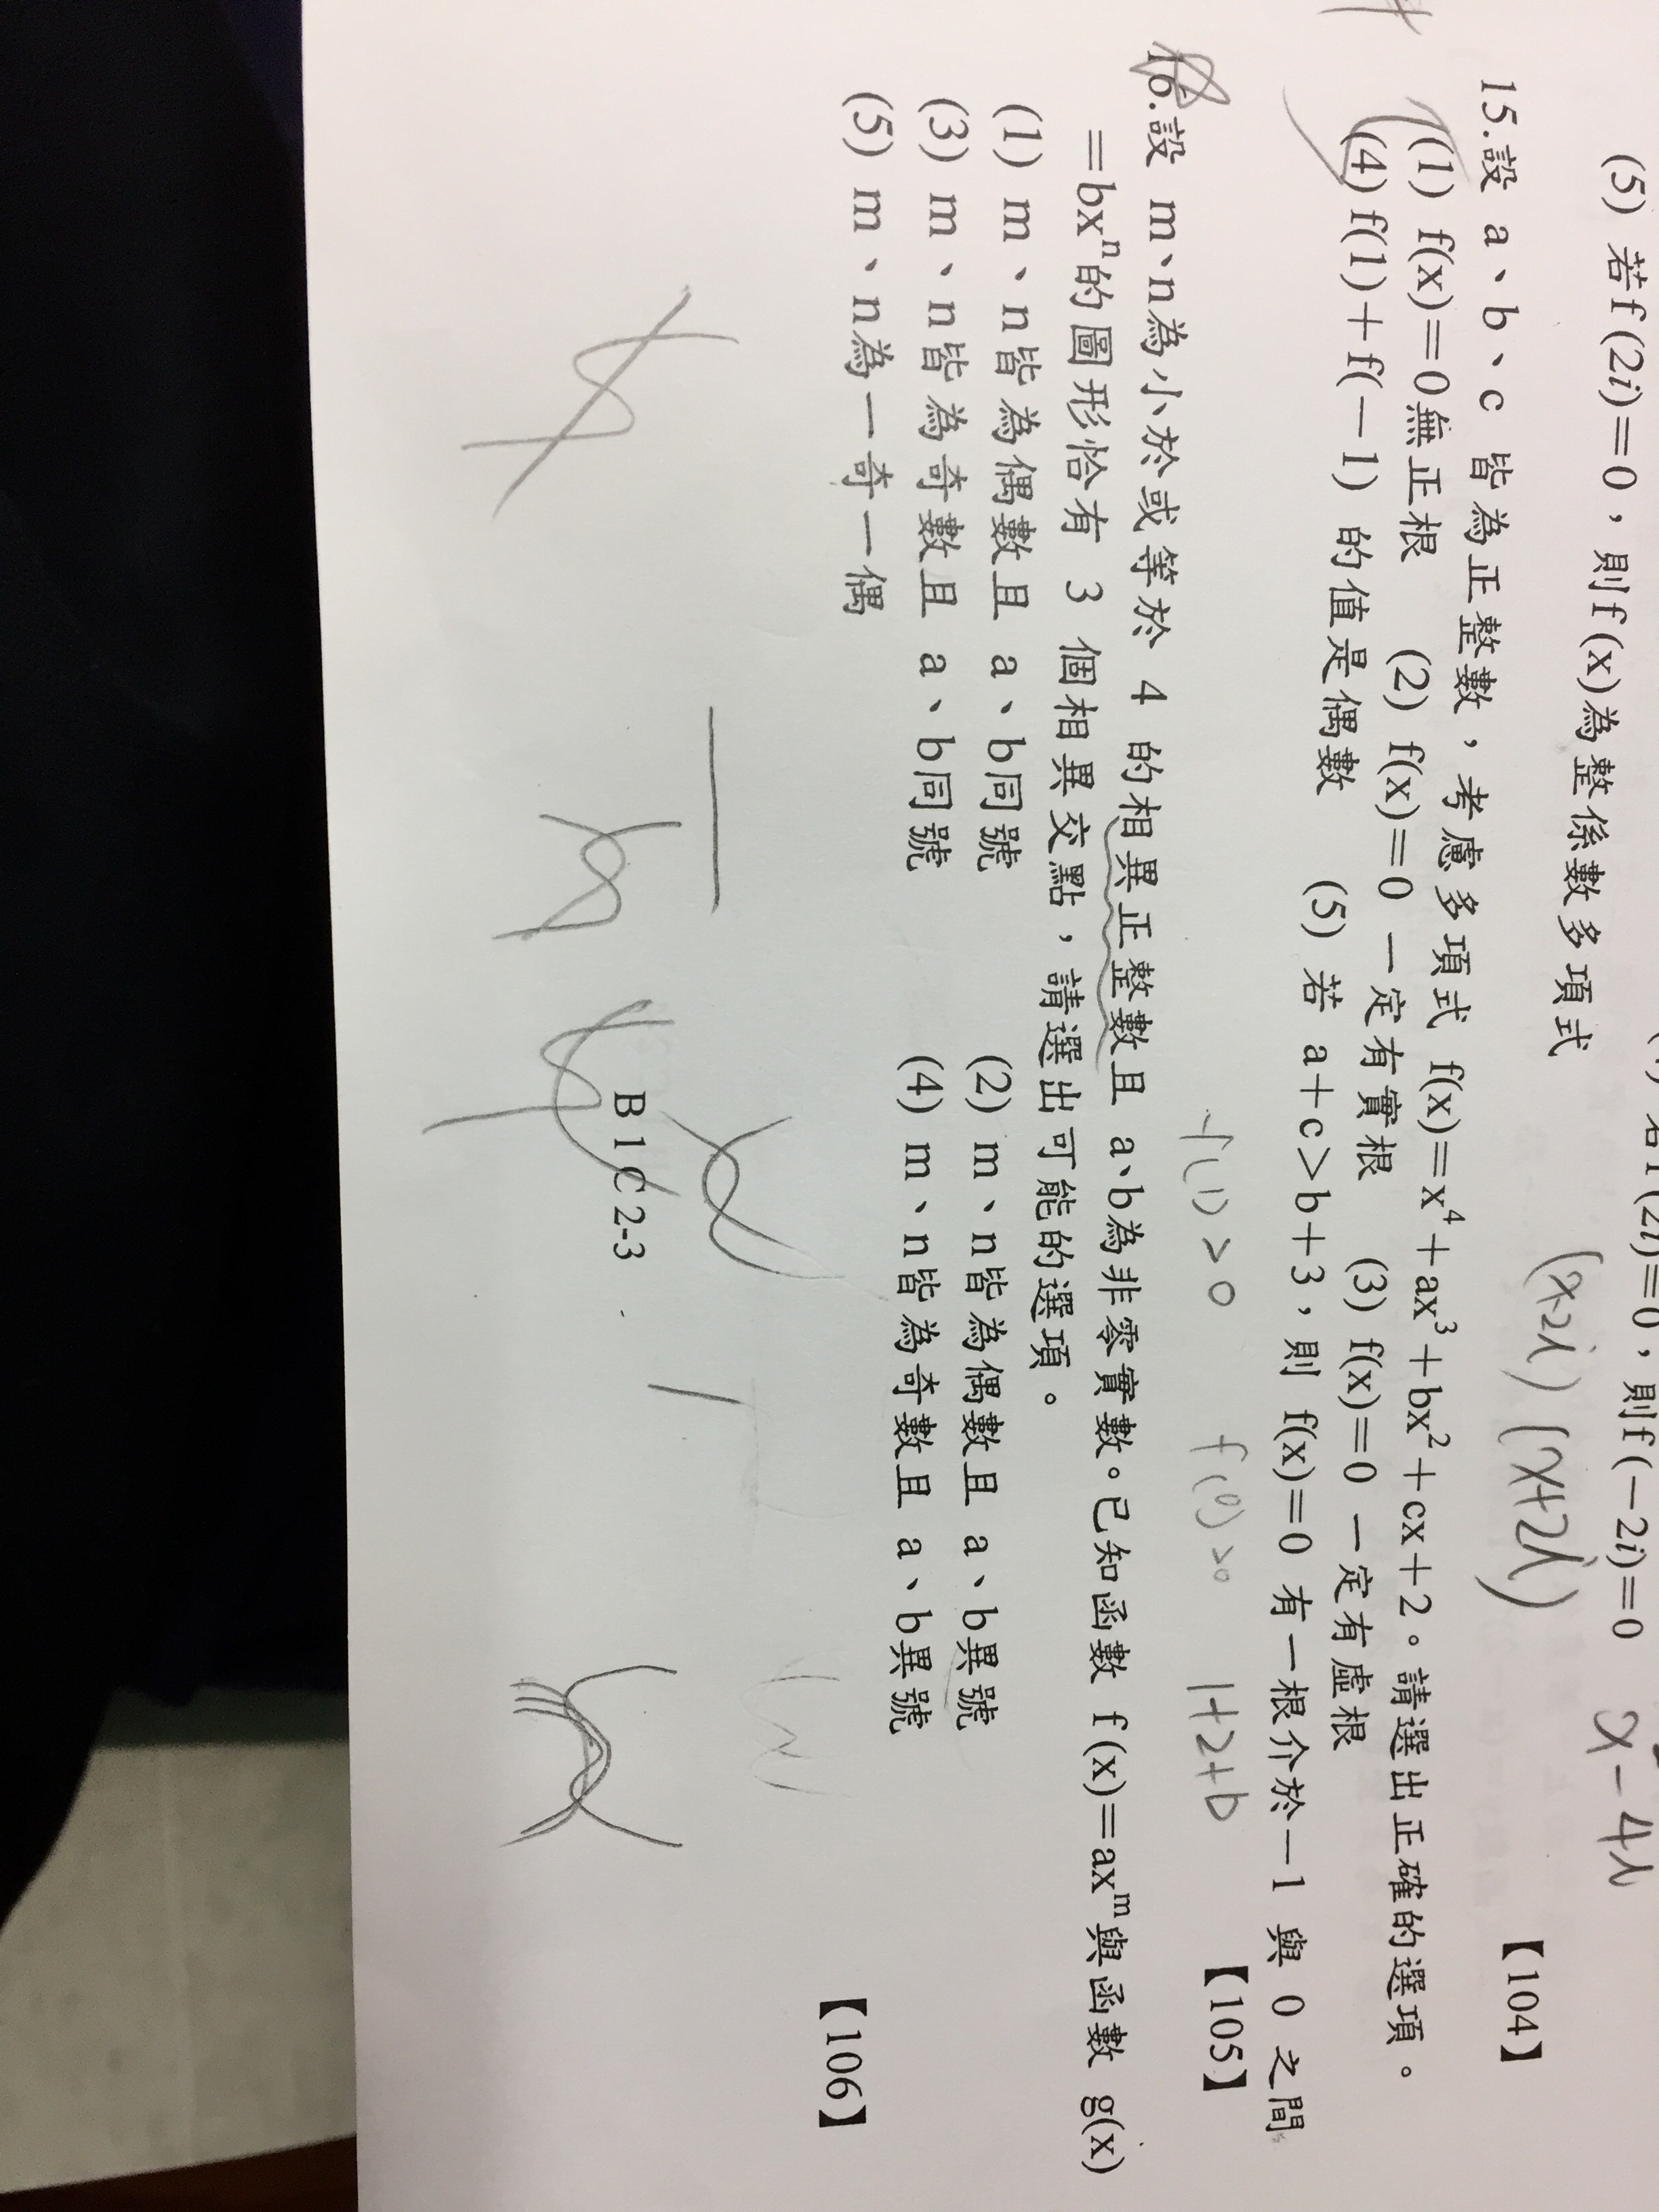 (5) 若f(2i)=0，則f(x)為整係數多項式
(x-2i)(x+2i)
x-4i
【104】
15.設 a、b、c 皆為正整數，考慮多項式 f(x)=x⁴+ax³+bx²+cx+2。請選出正確的選項。
(1) f(x)=0無正根 (2) f(x)=0 一定有實根 (3) f(x)=0 一定有虛根
(4) f(1)+f(-1) 的值是偶數 (5) 若 a+c>b+3，則 f(x)=0 有一根介於-1 與 0 之間
f(1)>0 f(0)>0 1+2+b
【105】
16.設 m、n為小於或等於 4 的相異正整數且 a、b為非零實數。已知函數 f(x)=axᵐ與函數 g(x)
=bxⁿ的圖形恰有 3 個相異交點，請選出可能的選項。
(1) m、n皆為偶數且 a、b同號 (2) m、n皆為偶數且 a、b異號
(3) m、n皆為奇數且 a、b同號 (4) m、n皆為奇數且 a、b異號
(5) m、n為一奇一偶
【106】
B1C2-3